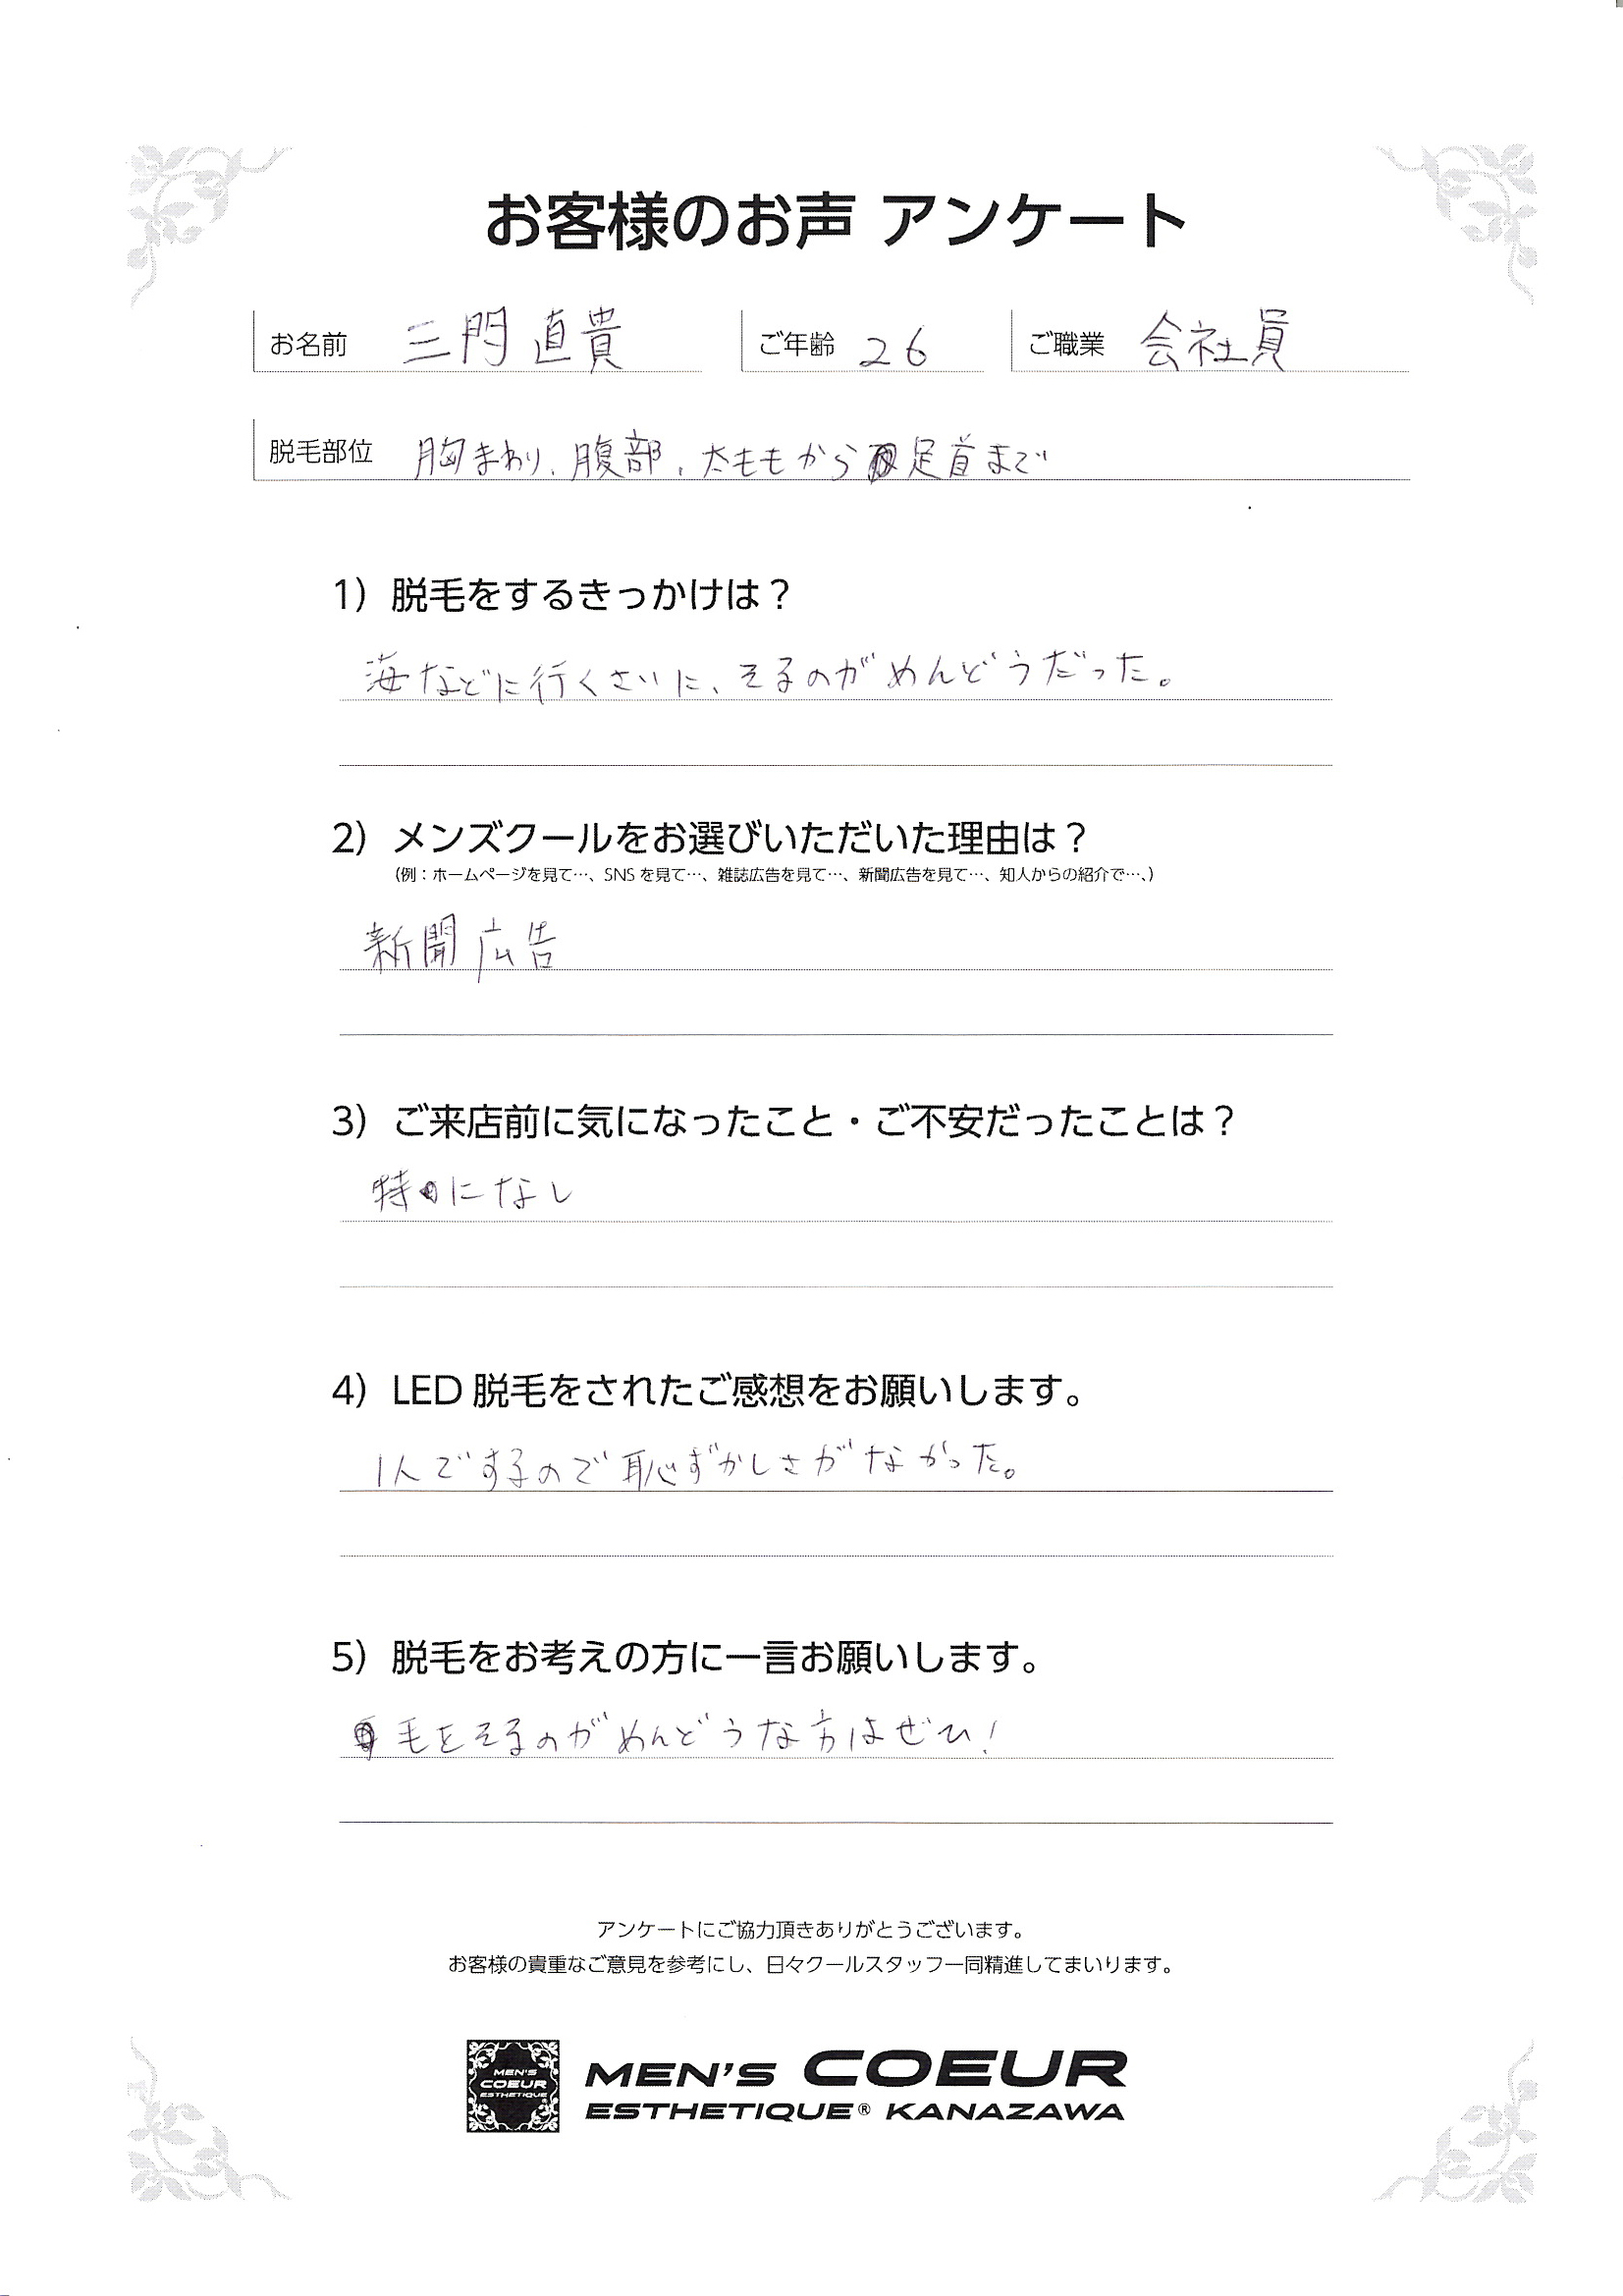 お客様のお声 アンケート
お名前 三門 直貴 ご年齢 26 ご職業 会社員
脱毛部位 胸まわり、腹部、太ももから足首まで
1）脱毛をするきっかけは？
海などに行くさいに、そるのがめんどうだった。
2）メンズクールをお選びいただいた理由は？
（例：ホームページを見て…、SNSを見て…、雑誌広告を見て…、新聞広告を見て…、知人からの紹介で…、）
新聞広告
3）ご来店前に気になったこと・ご不安だったことは？
特になし
4）LED 脱毛をされたご感想をお願いします。
1人でするので恥ずかしさがなかった。
5）脱毛をお考えの方に一言お願いします。
毛をそるのがめんどうな方はぜひ！
アンケートにご協力頂きありがとうございます。
お客様の貴重なご意見を参考にし、日々クールスタッフ一同精進してまいります。
MEN'S
COEUR
ESTHETIQUE
MEN'S COEUR
ESTHETIQUE® KANAZAWA